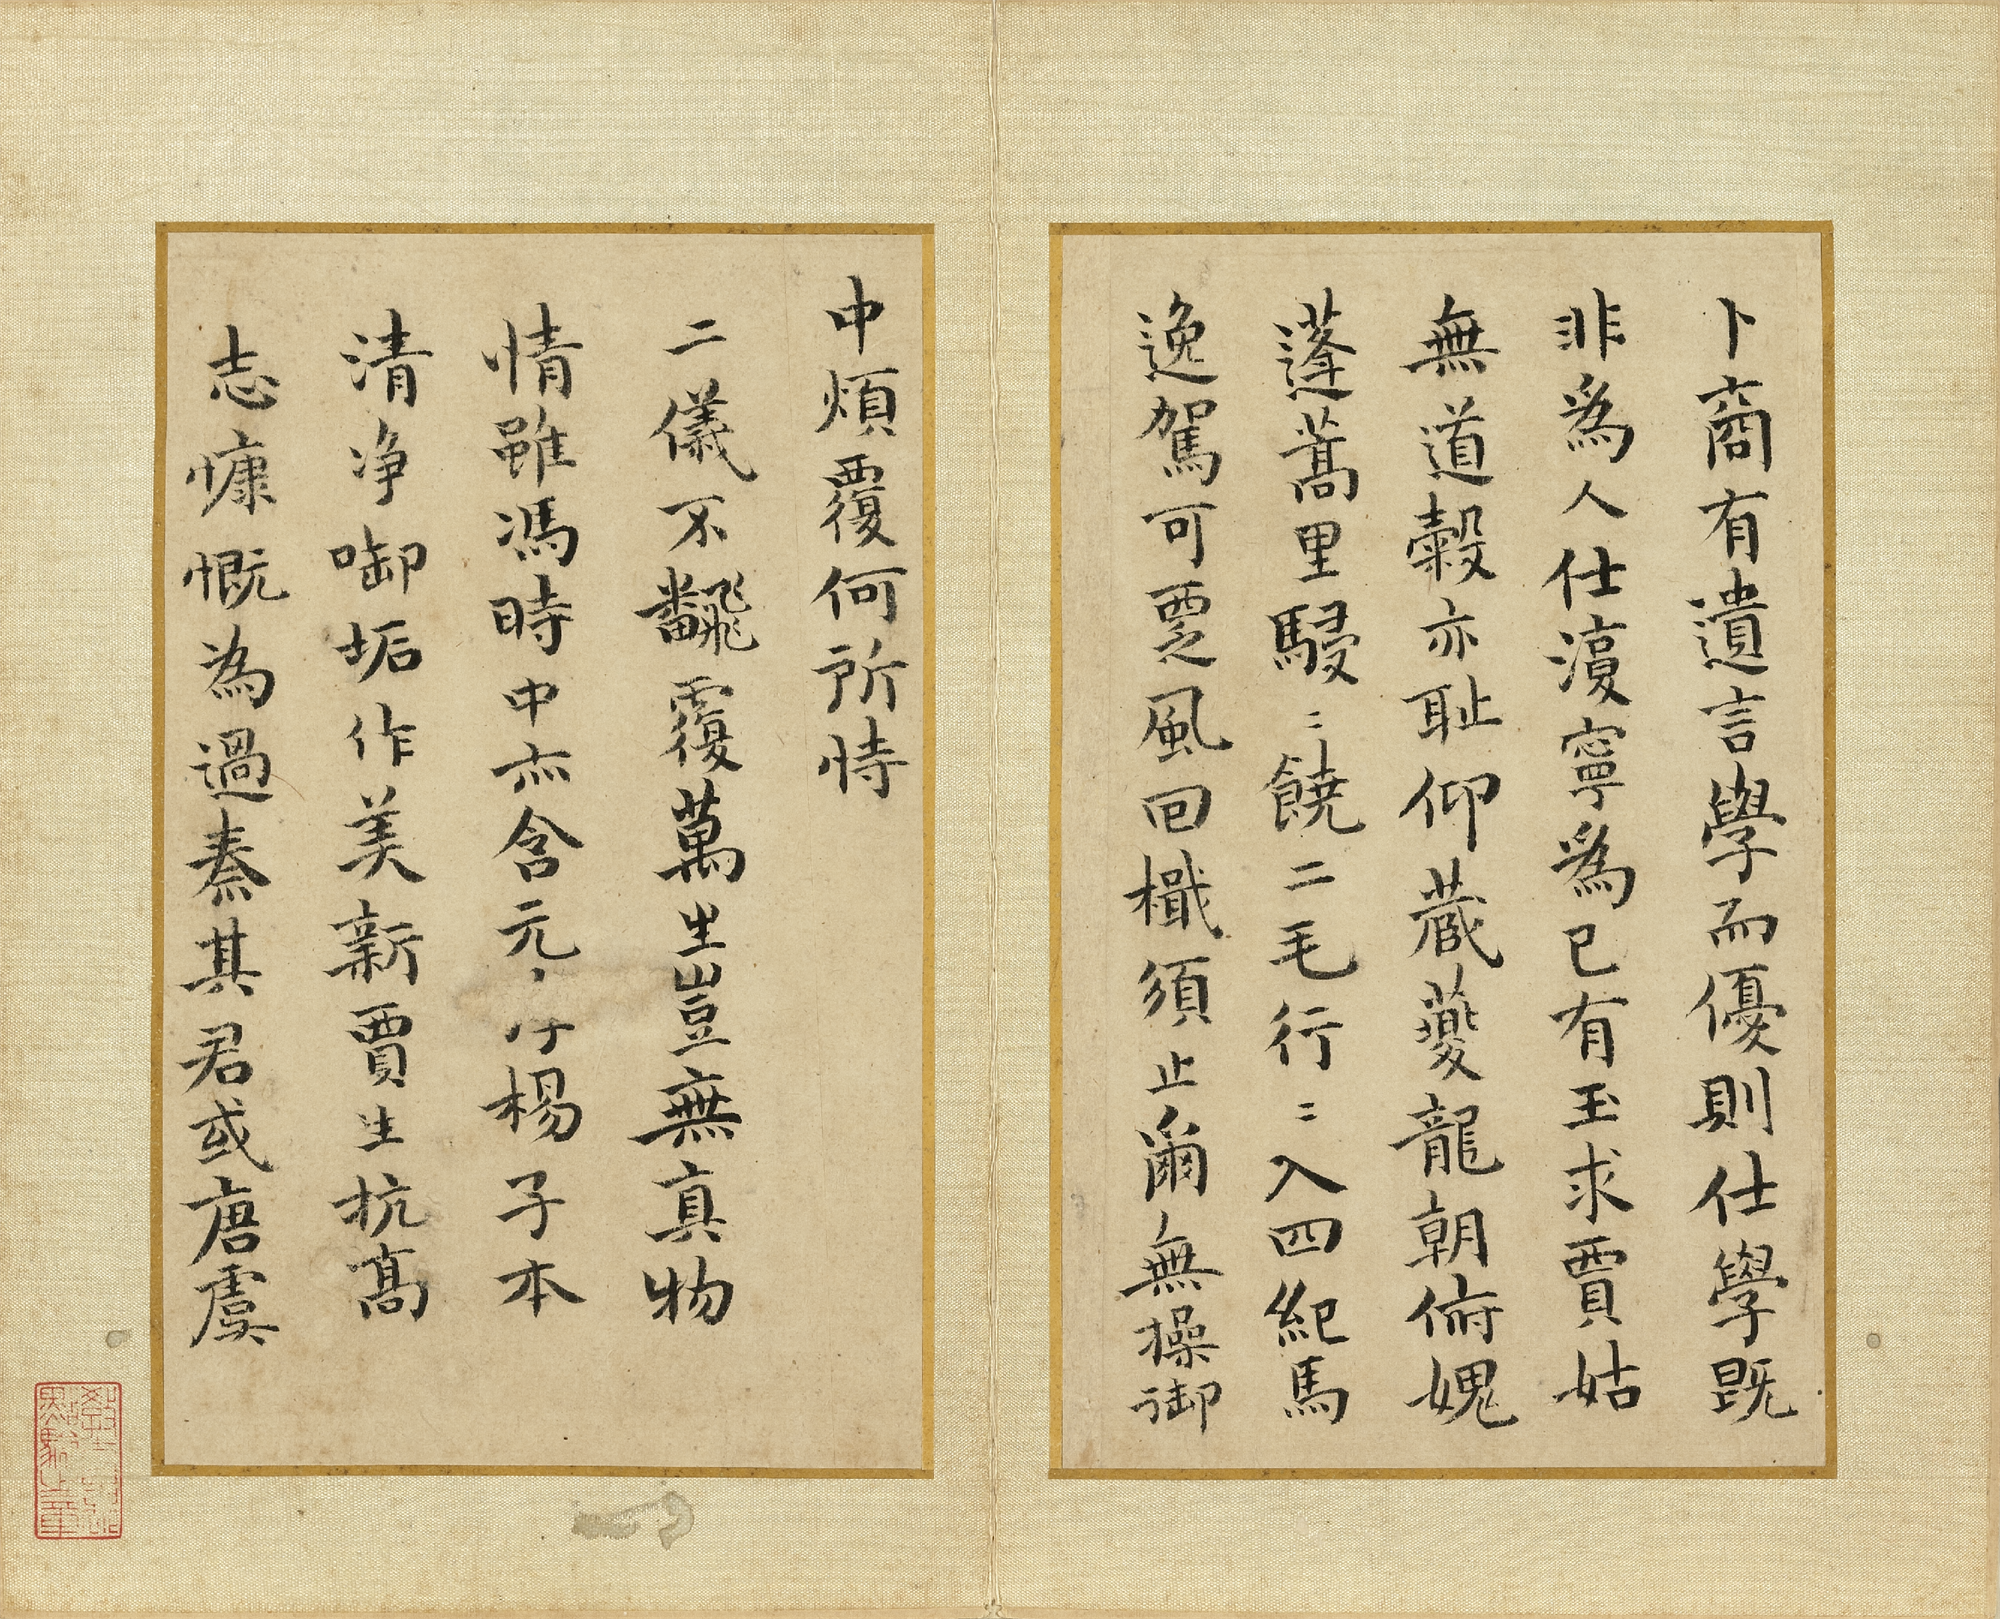 卜商有遺言學而優則仕學既
非為人仕湏寧為己有玉求賈姑
無道穀亦恥仰蔵夔龍朝俯媿
蓬蒿里駸〻饒二毛行〻入四紀馬
逸駕可覂風回檝須止爾無操御
中煩覆何所恃
二儀不飜覆萬生豈無真物
情雖馮時中亦含元楊子本
清净啣垢作美新賈生抗高
志慷慨為過秦其君或唐虞